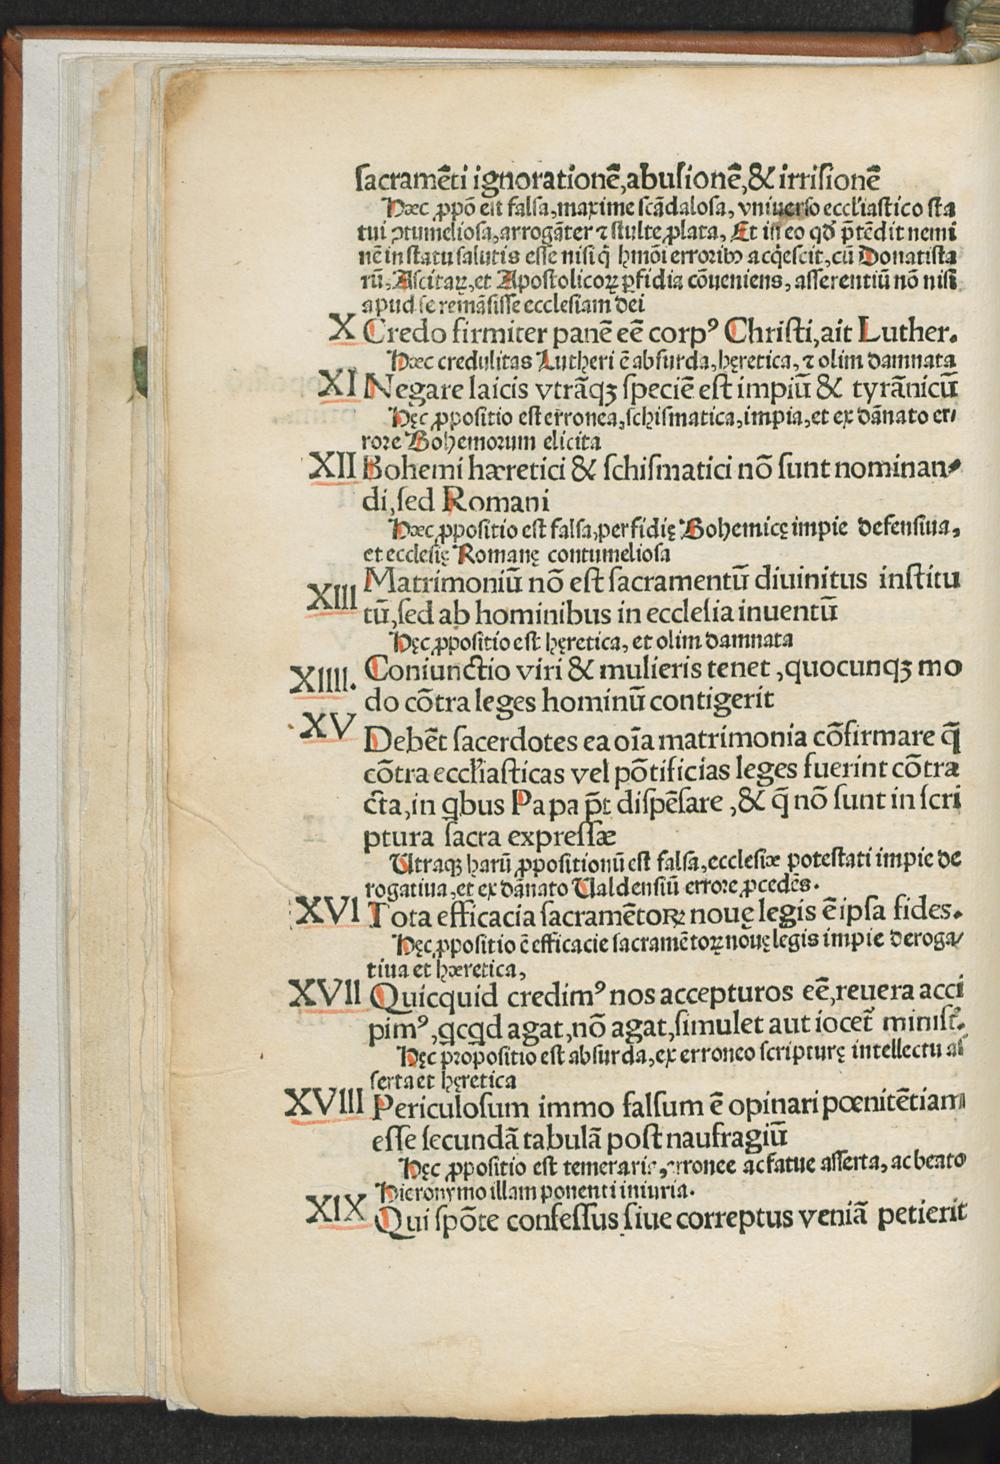 sacramēti ignorationē,abusionē,& irrisionē
Hæc ꝓpō est falsa,maxime scādalosa, vniuerso eccl'iastico sta
tui ꝯtumeliosa,arrogāter ⁊ stulte ꝓlata, Et in eo qđ p̄tēdit nemi
nē in statu salutis esse nisi q̇ hmōi erroribꝰ acq̇escit,cū Donatista
rū, Ascitaꝝ,et Apostolicoꝝ ꝑfidia cōueniens, asserentiū nō nisi
apud se remāsisse ecclesiam dei
X Credo firmiter panē eē corpꝰ Christi,ait Luther.
Hæc credulitas Lutheri ē absurda,hęretica, ⁊ olim damnata
XI Negare laicis vtrāqꝫ speciē est impiū & tyrānicū
Hęc ꝓpositio est erronea,schismatica,impia,et ex dānato er/
rore Bohemorum elicita
XII Bohemi hæretici & schismatici nō sunt nominan/
di,sed Romani
Hæc ꝓpositio est falsa,perfidię Bohemicę impie defensiua,
et ecclesię Romanę contumeliosa
XIII Matrimoniū nō est sacramentū diuinitus institu
tū,sed ab hominibus in ecclesia inuentū
Hęc ꝓpositio est hęretica, et olim damnata
XIIII. Coniunctio viri & mulieris tenet ,quocunqꝫ mo
do cōtra leges hominū contigerit
XV Debēt sacerdotes ea oīa matrimonia cōfirmare q̄
cōtra eccl'iasticas vel pōtificias leges fuerint cōtra
c̄ta,in qbus Papa p̄t dispēsare ,& q̄ nō sunt in scri
ptura sacra expressæ
Utraqꝫ harū ꝓpositionū est falsa,ecclesiæ potestati impie de
rogatiua,et ex dānato Ualdensiū errore ꝓcedēs.
XVI Tota efficacia sacramētoꝝ nouę legis ē ipsa fides.
Hęc ꝓpositio ē efficacie sacramētoꝝ nouę legis impie deroga/
tiua et hæretica,
XVII Quicquid credimꝰ nos accepturos eē,reuera acci
pimꝰ,qcqd agat,nō agat,simulet aut iocet᷑ minist᷑.
Hęc propositio est absurda,ex erroneo scripturę intellectu as
serta et hęretica
XVIII Periculosum immo falsum ē opinari pœnitētiam
esse secundā tabulā post naufragiū
Hęc ꝓpositio est temerarie,erronee ac fatue asserta, ac beato
Hieronymo illam ponenti iniuria.
XIX Qui spōte confessus siue correptus veniā petierit